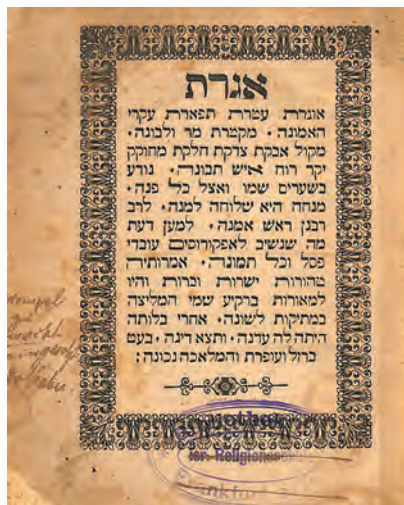 אגרת
אוגרת עטרת תפארת עקרי
האמונה · מקטרת מר ולבונה ·
מקול אבקת צדקת חלקת מחוקק
יקר רוח איש תבונה · נודע
בשערים שמו ואצל כל פנה ·
מנחה היא שלוחה למנה · לרב
רבנן ראש אמנה · למען דעת
מה שנשיב לאפקורוסים עובדי
פסל וכל תמונה · אמרותיה
טהורות ישרות וברות והיו
למאורות ברקיע שמי המליצה
במתיקות לשונה · אחרי בלותה
היתה לה עדנה · ותצא דינה · בעט
ברזל ועופרת והמלאכה נכונה :
isr. Religions
Frankfur